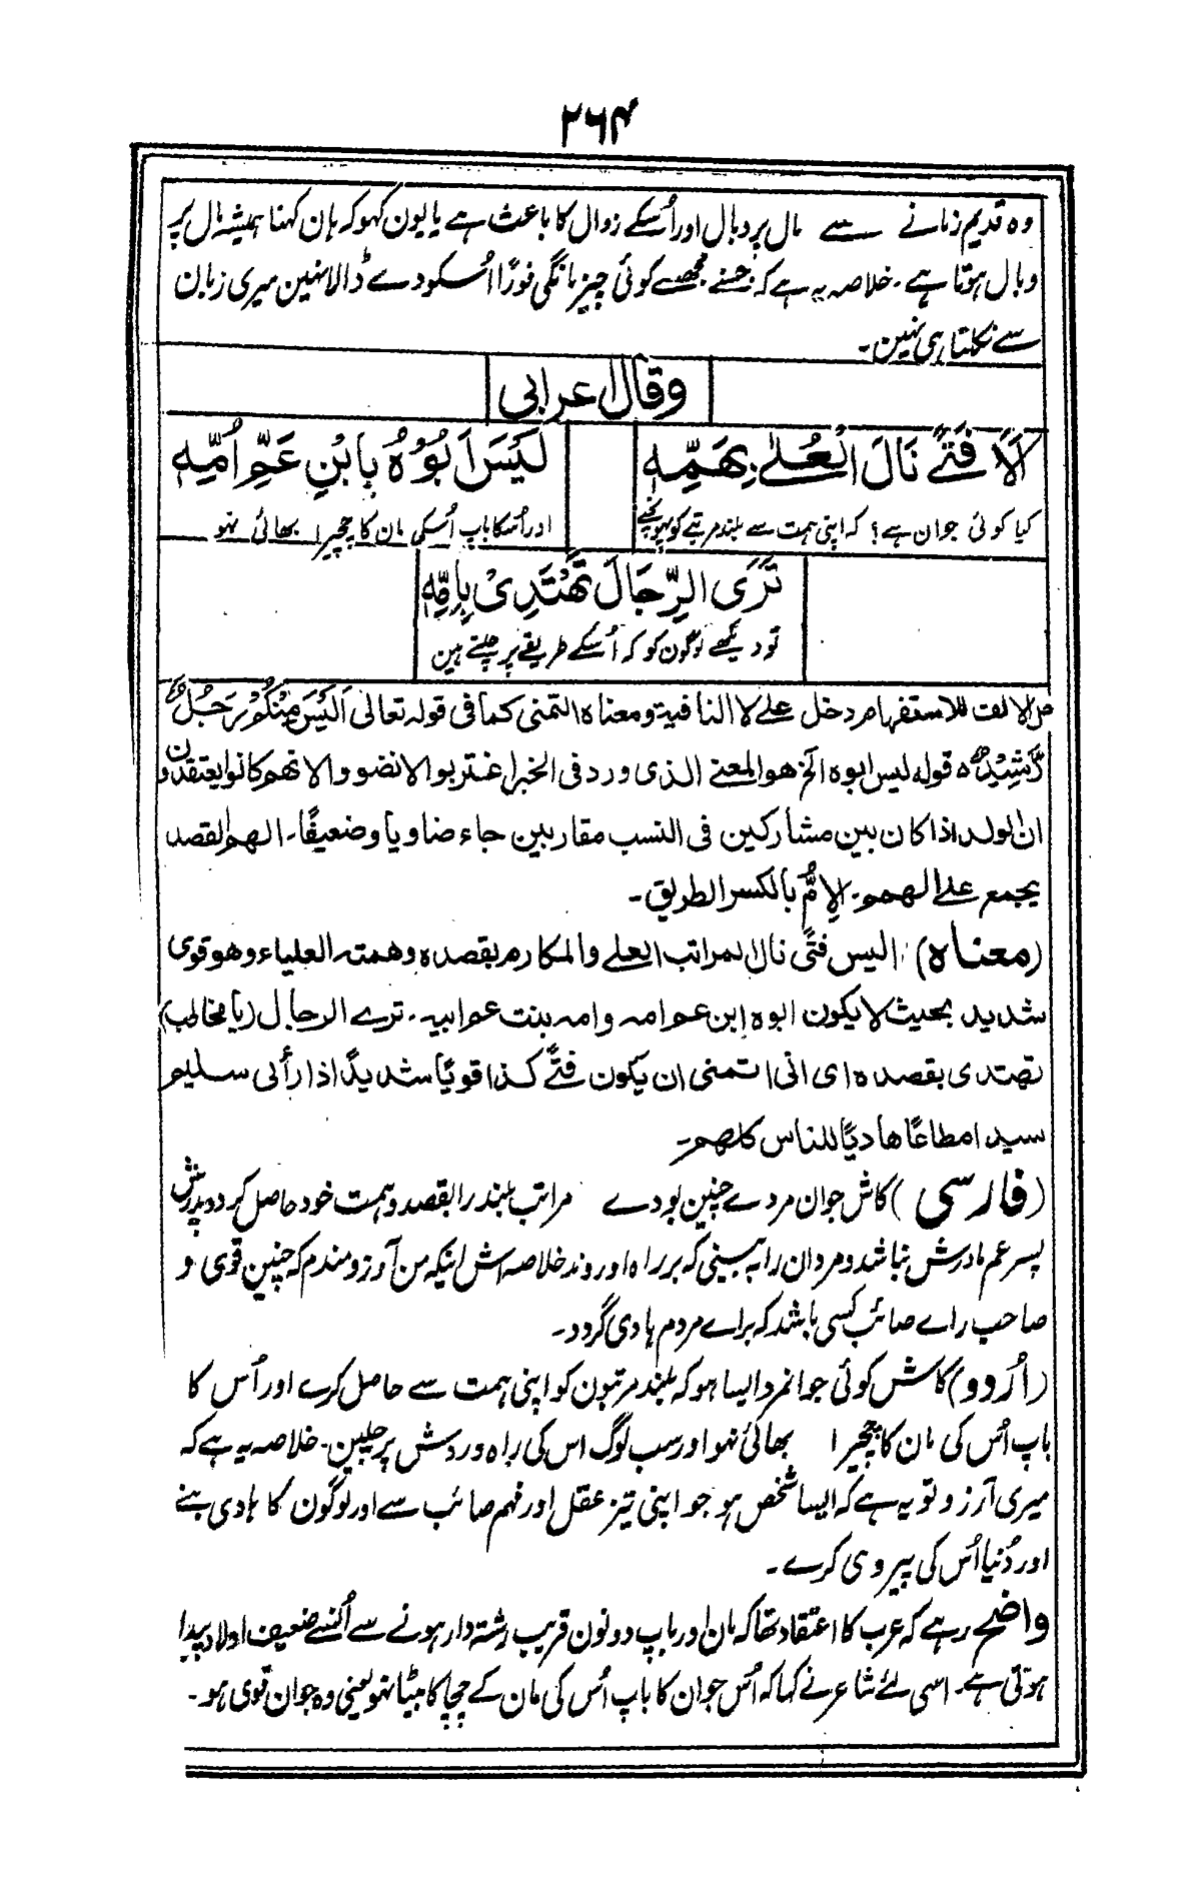 ۲۶۴
وہ قدیم زمانے سے مال پر وبال اور اُسکے زوال کا باعث ہے یا یون کہو کہ ہان کہنا ہمیشہ مال پر
وبال ہوتا ہے۔ خلاصہ یہ ہے کہ جسنے مجھسے کوئی چیز مانگی فورًا اُسکو دے ڈالا نہین میری زبان
سے نکلتا ہی نہین۔
وقال اعرابی
اَلَا فَتًى نَالَ الْعُلٰے بِهَمِّهٖ
لَيْسَ اَبُوْهُ بِابْنِ عَمِّ اُمِّهٖ
کیا کوئی جوان ہے؟ کہ اپنی ہمت سے بلند مرتبے کو پہونچے
اور اُسکا باپ اُسکی مان کا چچیرا بھائی نہو
تَرَى الرِّجَالَ تَهْتَدِىْ بِاِمِّهٖ
تو دیکھے لوگون کو کہ اُسکے طریقے پر چلتے ہین
حل الالف للاستفهام دخل علے لا النافية ومعناه التمنى كما فى قوله تعالى اَلَيْسَ مِنْكُمْ رَجُلٌ
رَّشِيْدٌ ٥ قوله ليس ابوه الخ هو المعنے الذى ورد فى الخبر اغتربوا لا تضووا لانهم كانوا يعتقدون
ان الولد اذا كان بين مشاركين فى النسب مقاربين جاء ضاويا وضعيفًا۔ الهم القصد
يجمع علے الهموم۔ الِامُّ بالكسر الطريق۔
(معناه) اليس فتًى نال المراتب العلے والمكارم بقصده وهمته العلياء وهو قوى
شديد بحيث لا يكون ابوه ابن عم امه وامه بنت عم ابيه۔ ترے الرجال (يا مخاطب)
تهتدى بقصده اى انى اتمنى ان يكون فتًے كذا قويًا شديدًا ذا رأى سليم
سيدا مطاعًا هاديًا للناس كلهم۔
(فارسی) کاش جوان مردے چنین بودے مراتب بلند را بقصد وہمت خود حاصل کردو پدرش
پسر عم مادرش نباشد ومردان را بہ بینی کہ بر راہ او روند خلاصہ اش اینکہ من آرزومندم کہ چنین قوی و
صاحب راے صائب کسی باشد کہ براے مردم ہادی گردد۔
(اُردو) کاش کوئی جوانمرد ایسا ہو کہ بلند مرتبون کو اپنی ہمت سے حاصل کرے اور اُس کا
باپ اُس کی مان کا چچیرا بھائی نہو اور سب لوگ اس کی راہ و روش پر چلین۔ خلاصہ یہ ہے کہ
میری آرزو تو یہ ہے کہ ایسا شخص ہو جو اپنی تیز عقل اور فہم صائب سے اور لوگون کا ہادی بنے
اور دُنیا اُس کی پیروی کرے۔
واضح رہے کہ عرب کا اعتقاد تھا کہ مان اور باپ دونون قریب رشتہ دار ہونے سے اُنسے ضعیف اولاد پیدا
ہوتی ہے۔ اسی لئے شاعر نے کہا کہ اُس جوان کا باپ اُس کی مان کے چچا کا بیٹا نہو یعنی وہ جوان قوی ہو۔